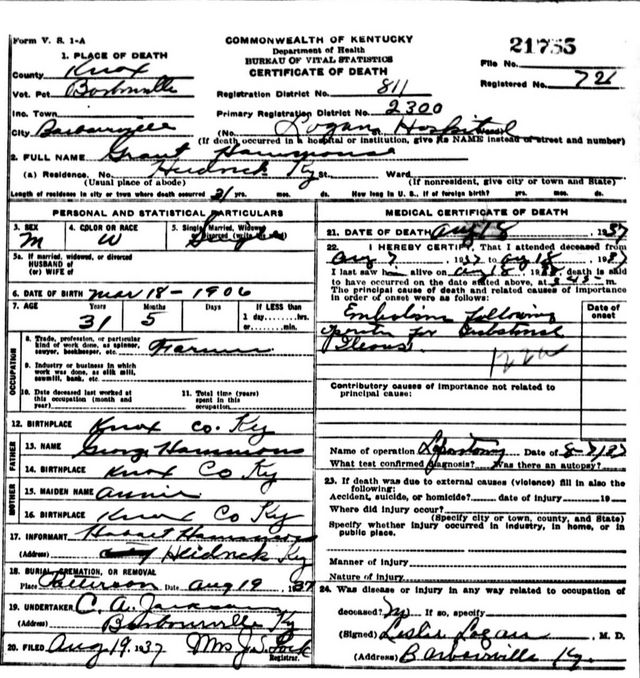 Form V. S. 1-A
COMMONWEALTH OF KENTUCKY
Department of Health
BUREAU OF VITAL STATISTICS
CERTIFICATE OF DEATH
21755
File No.
Registered No. 721
1. PLACE OF DEATH
County Knox
Vot. Pct. Barbourville
Inc. Town
City Barbourville
Registration District No. 811
Primary Registration District No. 2300
(No. Logans Hospital Ward)
(If death occurred in a hospital or institution, give its NAME instead of street and number)
2. FULL NAME Grant Hammons
(a) Residence. No. Heidrick Ky St. Ward.
(Usual place of abode) (If nonresident, give city or town and State)
Length of residence in city or town where death occurred 31 yrs. mos. ds. How long in U. S., if of foreign birth? yrs. mos. ds.
PERSONAL AND STATISTICAL PARTICULARS
3. SEX M
4. COLOR OR RACE W
5. Single, Married, Widowed or Divorced (write the word)
5a. If married, widowed, or divorced
HUSBAND of
(or) WIFE of
6. DATE OF BIRTH Mar 18 - 1906
7. AGE Years Months Days If LESS than
31 5 1 day,.....hrs.
or.....min.
OCCUPATION
8. Trade, profession, or particular
kind of work done, as spinner,
sawyer, bookkeeper, etc. Farmer
9. Industry or business in which
work was done, as silk mill,
sawmill, bank, etc.
10. Date deceased last worked at
this occupation (month and
year)
11. Total time (years)
spent in this
occupation
12. BIRTHPLACE Knox Co. Ky
FATHER
13. NAME George Hammons
14. BIRTHPLACE Knox Co Ky
MOTHER
15. MAIDEN NAME Annie
16. BIRTHPLACE Knox Co Ky
17. INFORMANT Hammons
(Address) Heidrick Ky
18. BURIAL, CREMATION, OR REMOVAL
Place Patterson Date Aug 19, 1937
19. UNDERTAKER C. A. Jackson
(Address) Barbourville Ky
20. FILED Aug 19, 1937 Mrs J. S.
Registrar.
MEDICAL CERTIFICATE OF DEATH
21. DATE OF DEATH Aug 18, 1937
22. I HEREBY CERTIFY, That I attended deceased from
Aug 7, 1937 to Aug 18, 1937
I last saw him alive on Aug 18, death is said
to have occurred on the date stated above, at m.
The principal cause of death and related causes of importance
in order of onset were as follows:
Date of
onset
Embolism following
for
Ileous
122a
Contributory causes of importance not related to
principal cause:
Name of operation Date of 8-7-37
What test confirmed diagnosis? Was there an autopsy?
23. If death was due to external causes (violence) fill in also the
following:
Accident, suicide, or homicide? date of injury 19
Where did injury occur?
(Specify city or town, county, and State)
Specify whether injury occurred in industry, in home, or in
public place.
Manner of injury
Nature of injury
24. Was disease or injury in any way related to occupation of
deceased? If so, specify
(Signed) Leslie Logan, M. D.
(Address) Barbourville Ky.